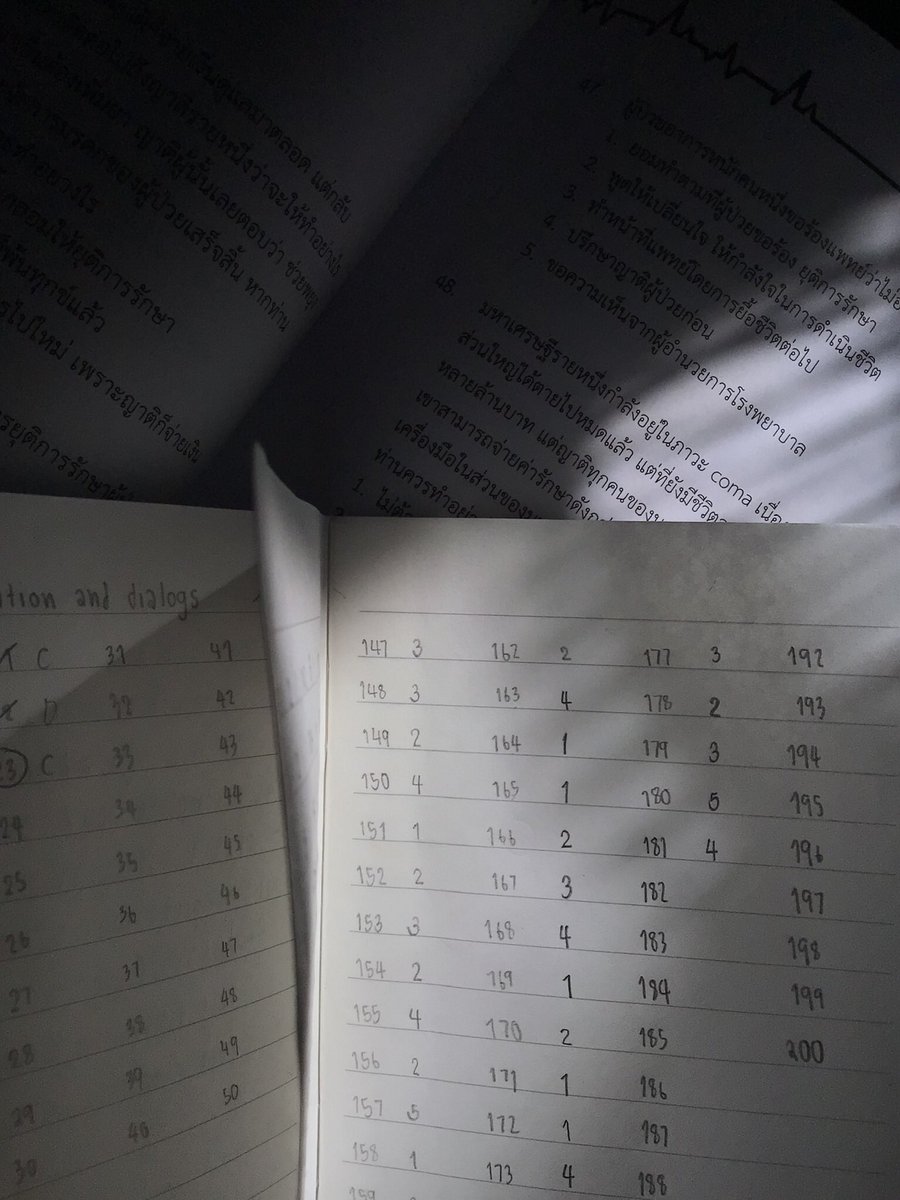 ตลอด แต่กลับ
ญาติรายหนึ่งว่าจะให้ทำอย่างไร
ญาติผู้นั้นเลยตอบว่า ช่วยพยุง
ของผู้ป่วยเสร็จสิ้น หากท่าน
ทำอย่างไร
ให้ยุติการรักษา
พ้นทุกข์แล้ว
ไปใหม่ เพราะญาติก็จ่ายเงิน
ยุติการรักษา
47
ผู้ป่วยอาการหนักคนหนึ่งขอร้องแพทย์ว่า
1. ยอมทำตามที่ผู้ป่วยขอร้อง ยุติการรักษา
2. พูดให้เปลี่ยนใจ ให้กำลังใจในการดำเนินชีวิต
3. ทำหน้าที่แพทย์โดยการยื้อชีวิตต่อไป
4. ปรึกษาญาติผู้ป่วยก่อน
5. ขอความเห็นจากผู้อำนวยการโรงพยาบาล
48
มหาเศรษฐีรายหนึ่งกำลังอยู่ในภาวะ coma
ส่วนใหญ่ได้ตายไปหมดแล้ว แต่ที่ยังมีชีวิต
หลายล้านบาท แต่ญาติทุกคนของ
เขาสามารถจ่ายค่ารักษา
เครื่องมือในส่วนของ
ท่านควรทำ
1.
and dialogs
C 31 41
D 32 42
23 C 33 43
24 34 44
25 35 45
26 36 46
27 37 47
28 38 48
29 39 49
30 40 50
147 3 162 2 177 3 192
148 3 163 4 178 2 193
149 2 164 1 179 3 194
150 4 165 1 180 5 195
151 1 166 2 181 4 196
152 2 167 3 182 197
153 3 168 4 183 198
154 2 169 1 184 199
155 4 170 2 185 200
156 2 171 1 186
157 5 172 1 187
158 1 173 4 188
159